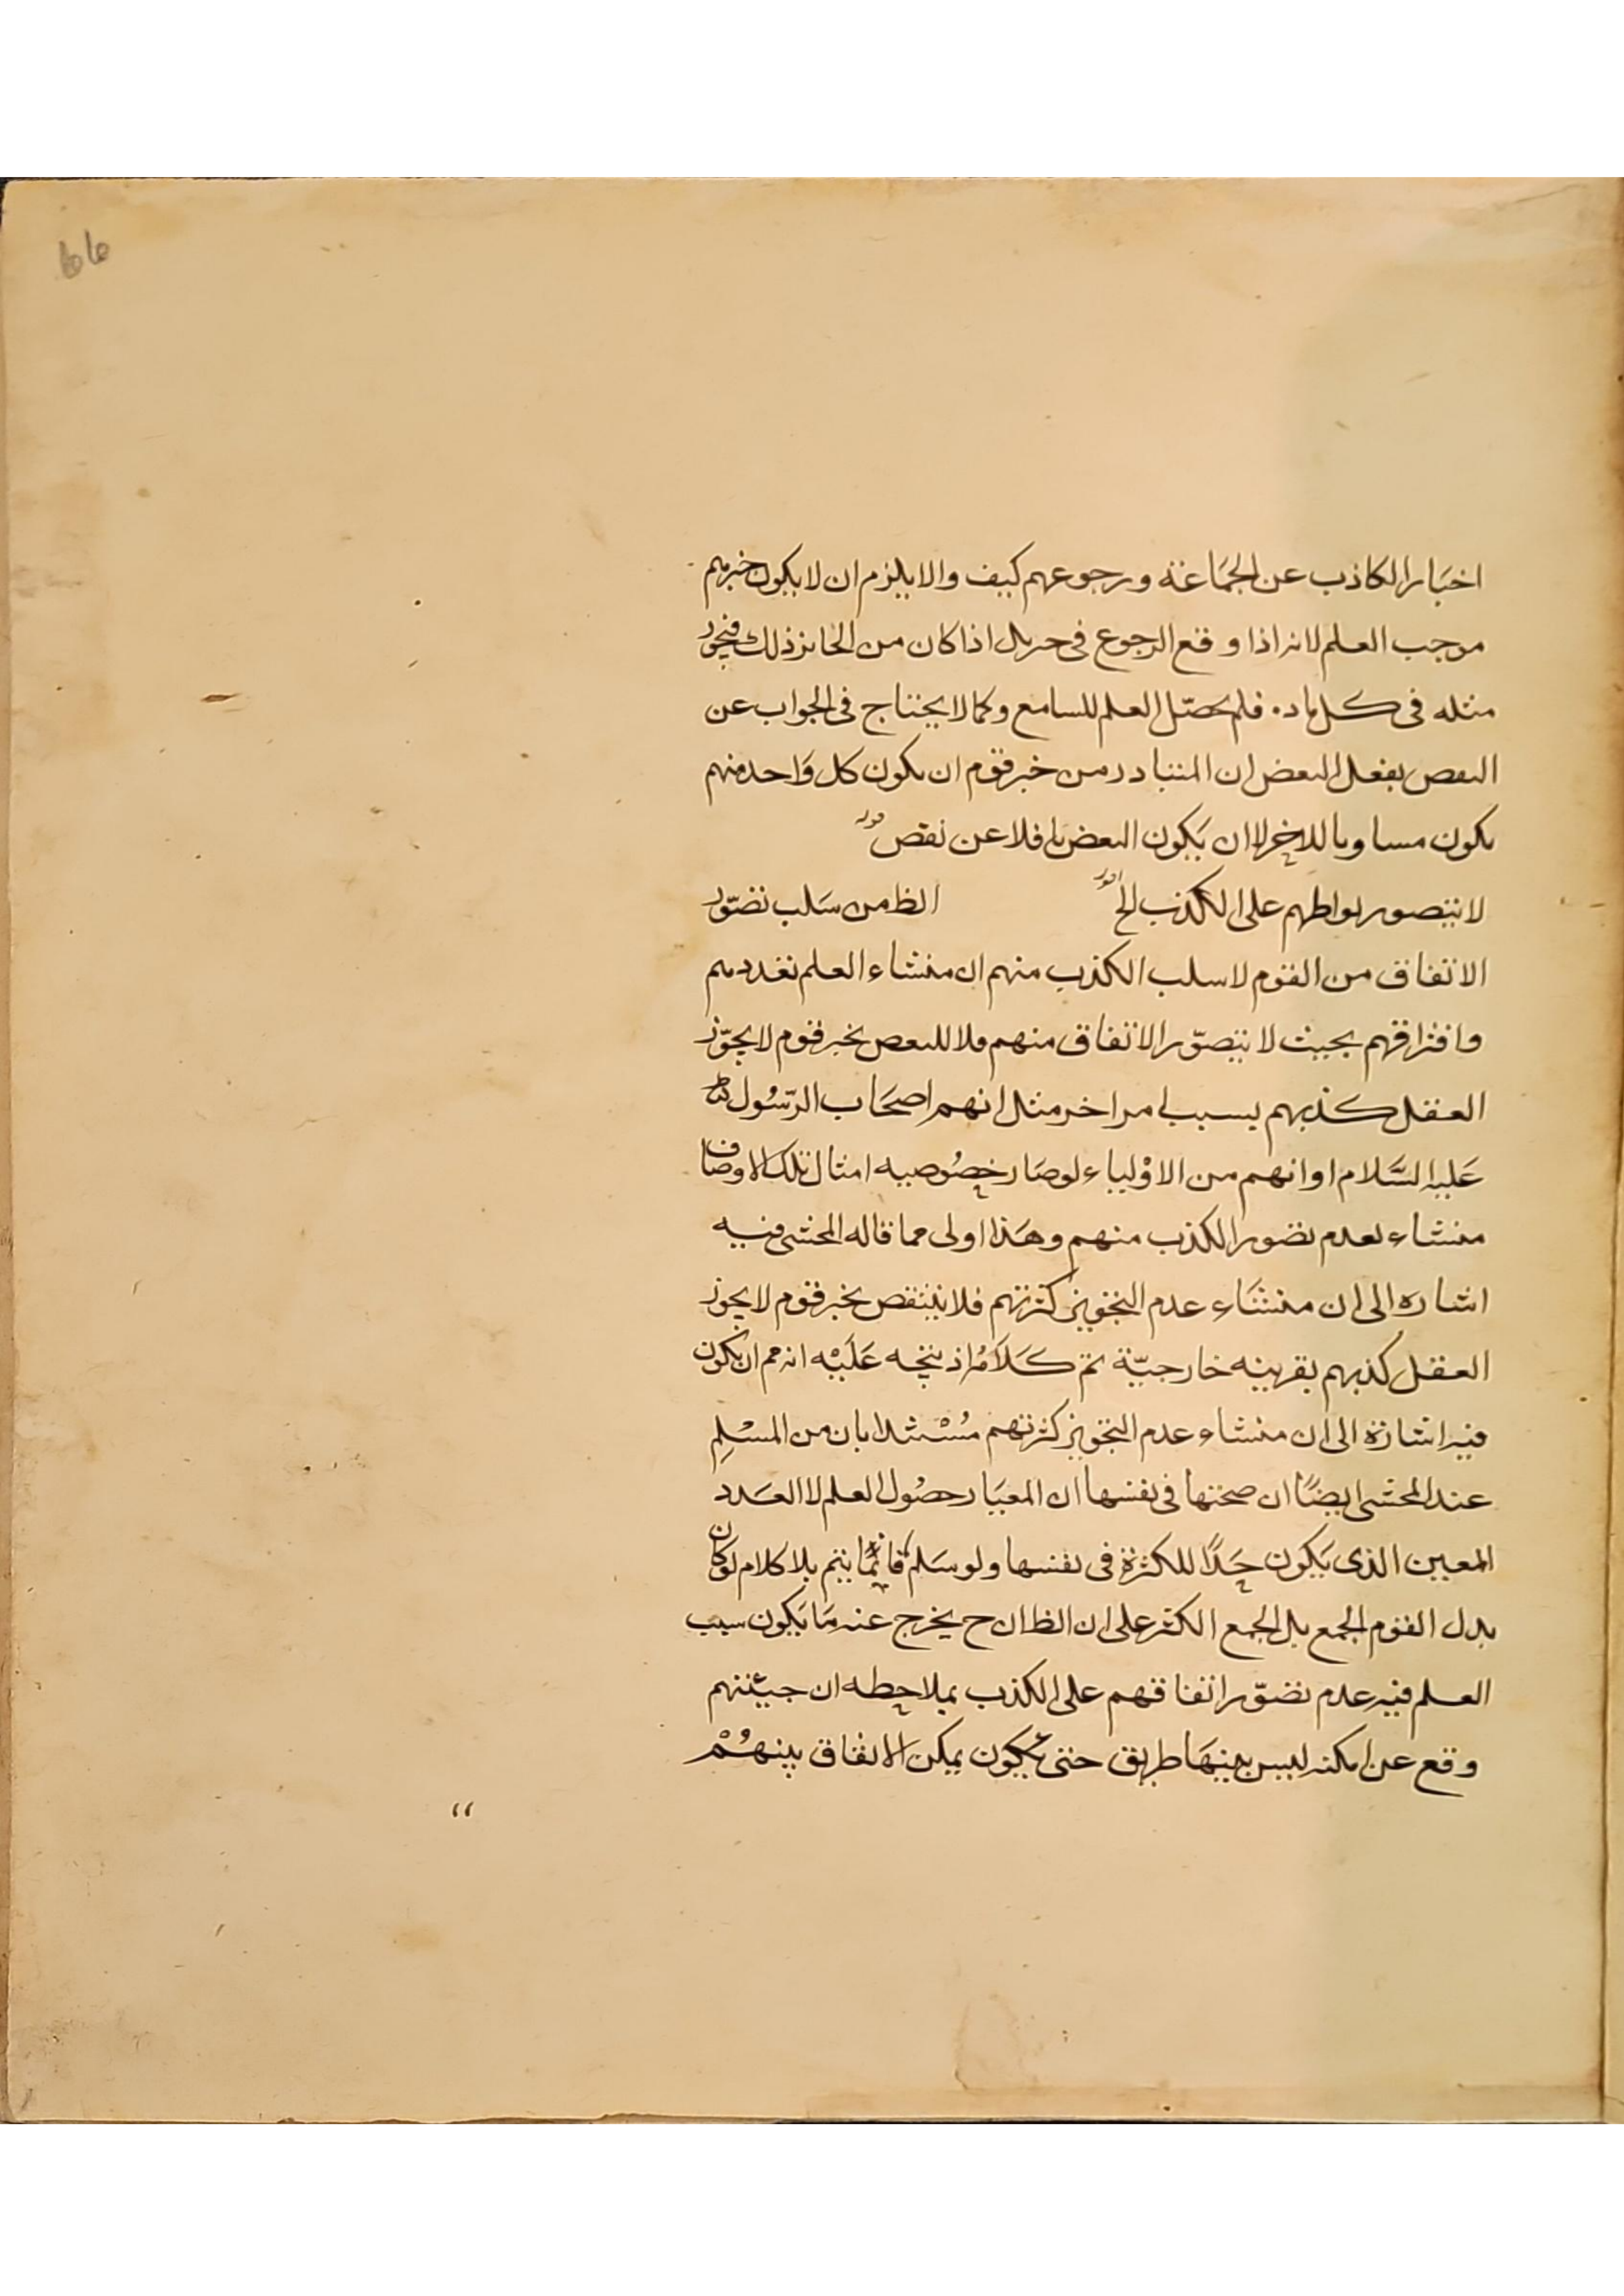 اخبار الكاذب عن الجماعة ورجوعهم كيف والا يلزم ان لا يكون خبرهم
موجب العلم لانه اذا وقع الرجوع فى اذا كان من الجايز ذلك فيجوز
مثله فى كل ماده فلم يحصّل العلم للسامع وكما لا يحتاج فى الجواب عن
النقص بفعل البعض ان المتبادر من خبر قوم ان يكون كل واحد منهم
يكون مساويا للاخر لا ان يكون البعض نافلا عن نقص قوله
لا يتصور تواطهم على الكذب الخ اقول الظ من سلب تصوّر
الاتفاق من القوم لا سلب الكذب منهم ان منشاء العلم تعددهم
وافتراقهم بحيث لا يتصوّر الاتفاق منهم بخبر قوم لا يجوّز
العقل كذبهم بسبب امر اخر مثل انهم اصحاب الرّسُول
عَليه السَّلام او انهم من الاوْلياء لو صار خصُوصيه امثال تلك الاوصاف
منشاء لعدم تصور الكذب منهم وهَذا اولى مما قاله المحشى فيه
اشاره الى ان منشَاء عدم التجويز كثرتهم فلا ينتقص بخبر قوم لا يجوز
العقل كذبهم بقرينه خارجيّة تم كَلاَمُه اذ يتجه عَلَيْه انه مم ان يكون
فيه اشارة الى ان منشاء عدم التجويز كثرتهم بان من المسْلِم
عند المحشى ايضًا ان صحتها فى نفسها ان المعيَار حصُول العلم لا العَدد
المعين الذى يَكون حَدًا للكثرة فى نفسها ولو سَلم فانّما يتم بلا كلام لو كان
بدل القوم الجمع بل الجمع الكثر على ان الظ ان ح يخرج عنه مَا يَكون سبب
العلم فيه عدم تصوّر اتفاقهم على الكذب بملاحظه ان جيئتهم
وقع عن امكنه ليس بينهَا طريق حتى يكون يمكن الاتفاق بينهُمْ